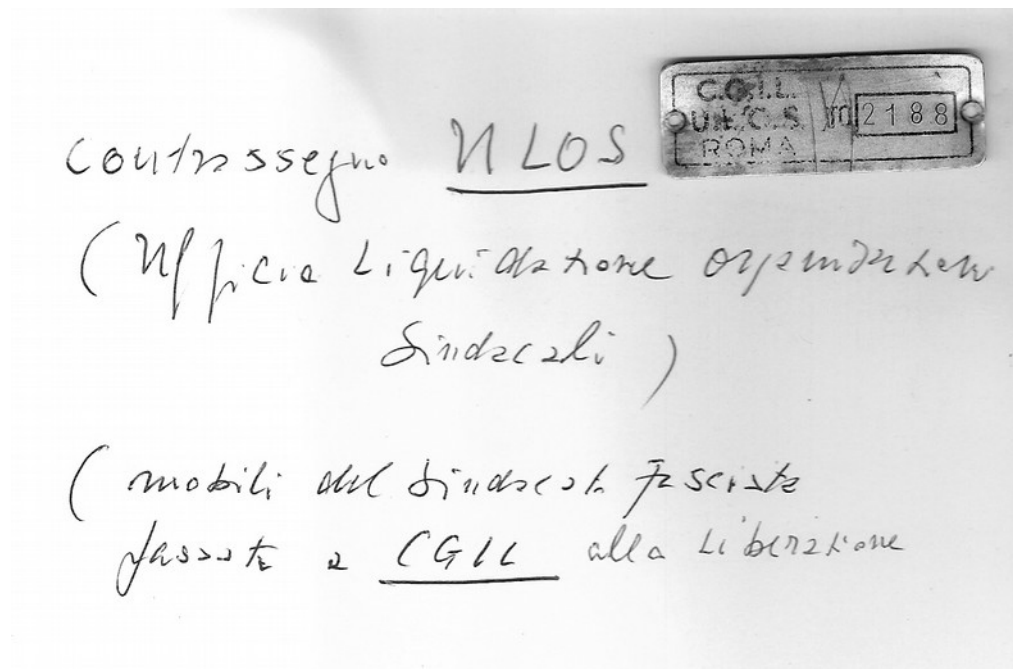 C.G.I.L.
U.L.O.S. TO 2188
ROMA
Contrassegno ULOS
(Ufficio Liquidazione organizzazioni
Sindacali)
(mobili del Sindacato Fascista
passati a CGIL alla Liberazione